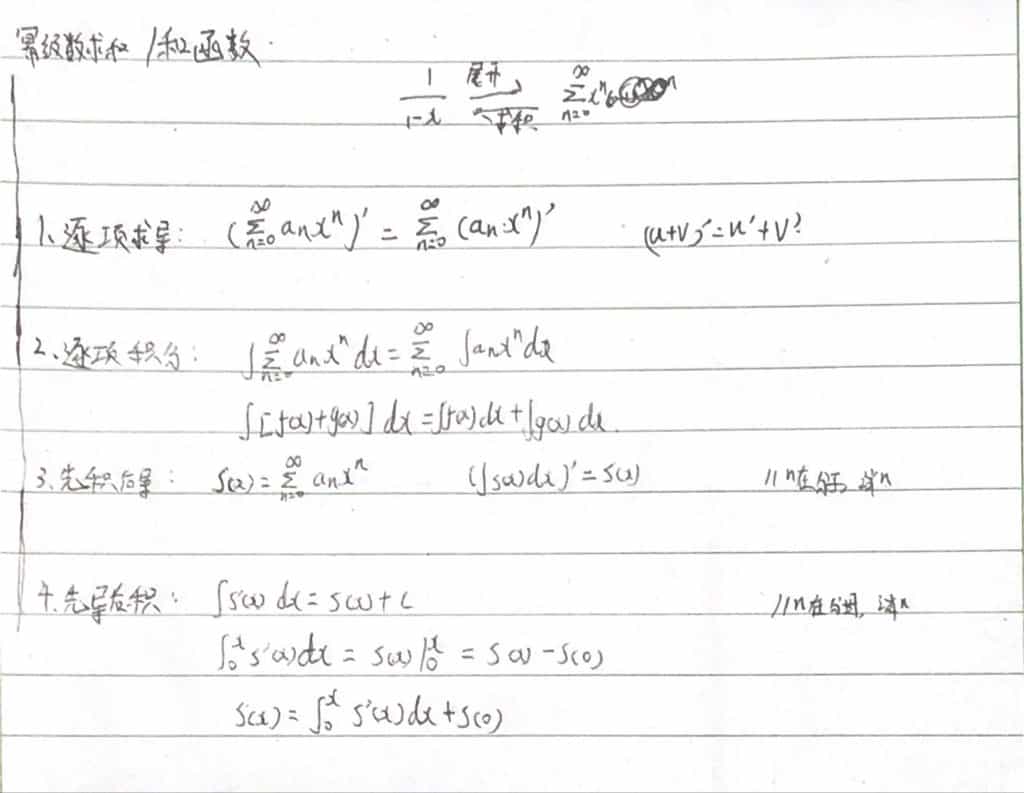 幂级数求和/和函数.
1/(1-x) 展开 求和 ∑_{n=0}^{∞} x^n
1、逐项求导: (∑_{n=0}^{∞} a_n x^n)' = ∑_{n=0}^{∞} (a_n·x^n)' (u+v)'=u'+v'
2、逐项积分: ∫∑_{n=0}^{∞} a_n x^n dx = ∑_{n=0}^{∞} ∫a_n x^n dx
∫[f(x)+g(x)] dx = ∫f(x) dx + ∫g(x) dx.
3、先积后导: S(x) = ∑_{n=0}^{∞} a_n x^n (∫S(x) dx)' = S(x) //n在分子, 消n
4、先导后积: ∫S'(x) dx = S(x) + C //n在分母, 消n
∫_0^x S'(x) dx = S(x)|_0^x = S(x) - S(0)
S(x) = ∫_0^x S'(x) dx + S(0)